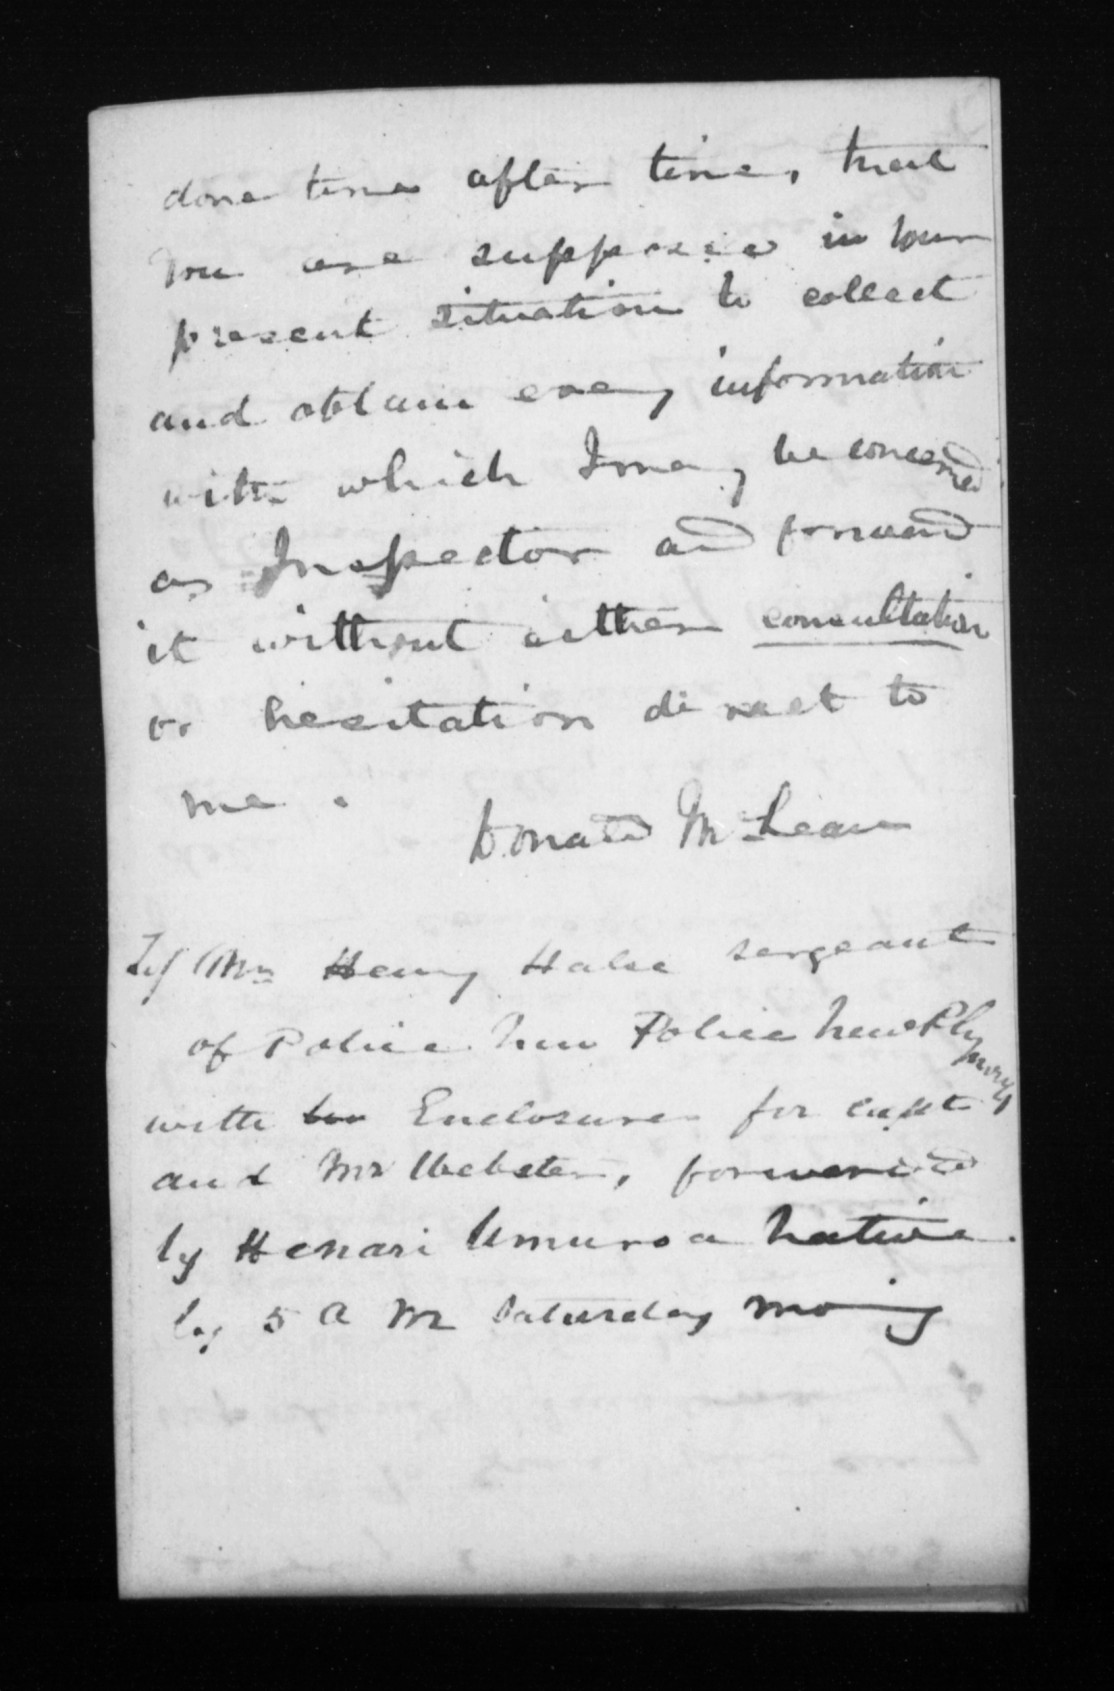 done time after time, that
you are supposed in your
present situation to collect
and obtain every information
with which I may be concerned
as Inspector and forward
it without either consultation
or hesitation direct to
me.
Donald McLean
Mr Henry Halse sergeant
of Police New Police New Plymouth
with Enclosures for Capt
and Mr Webster, forwarded
by Henari Umuroa Native
by 5 A M Saturday morning